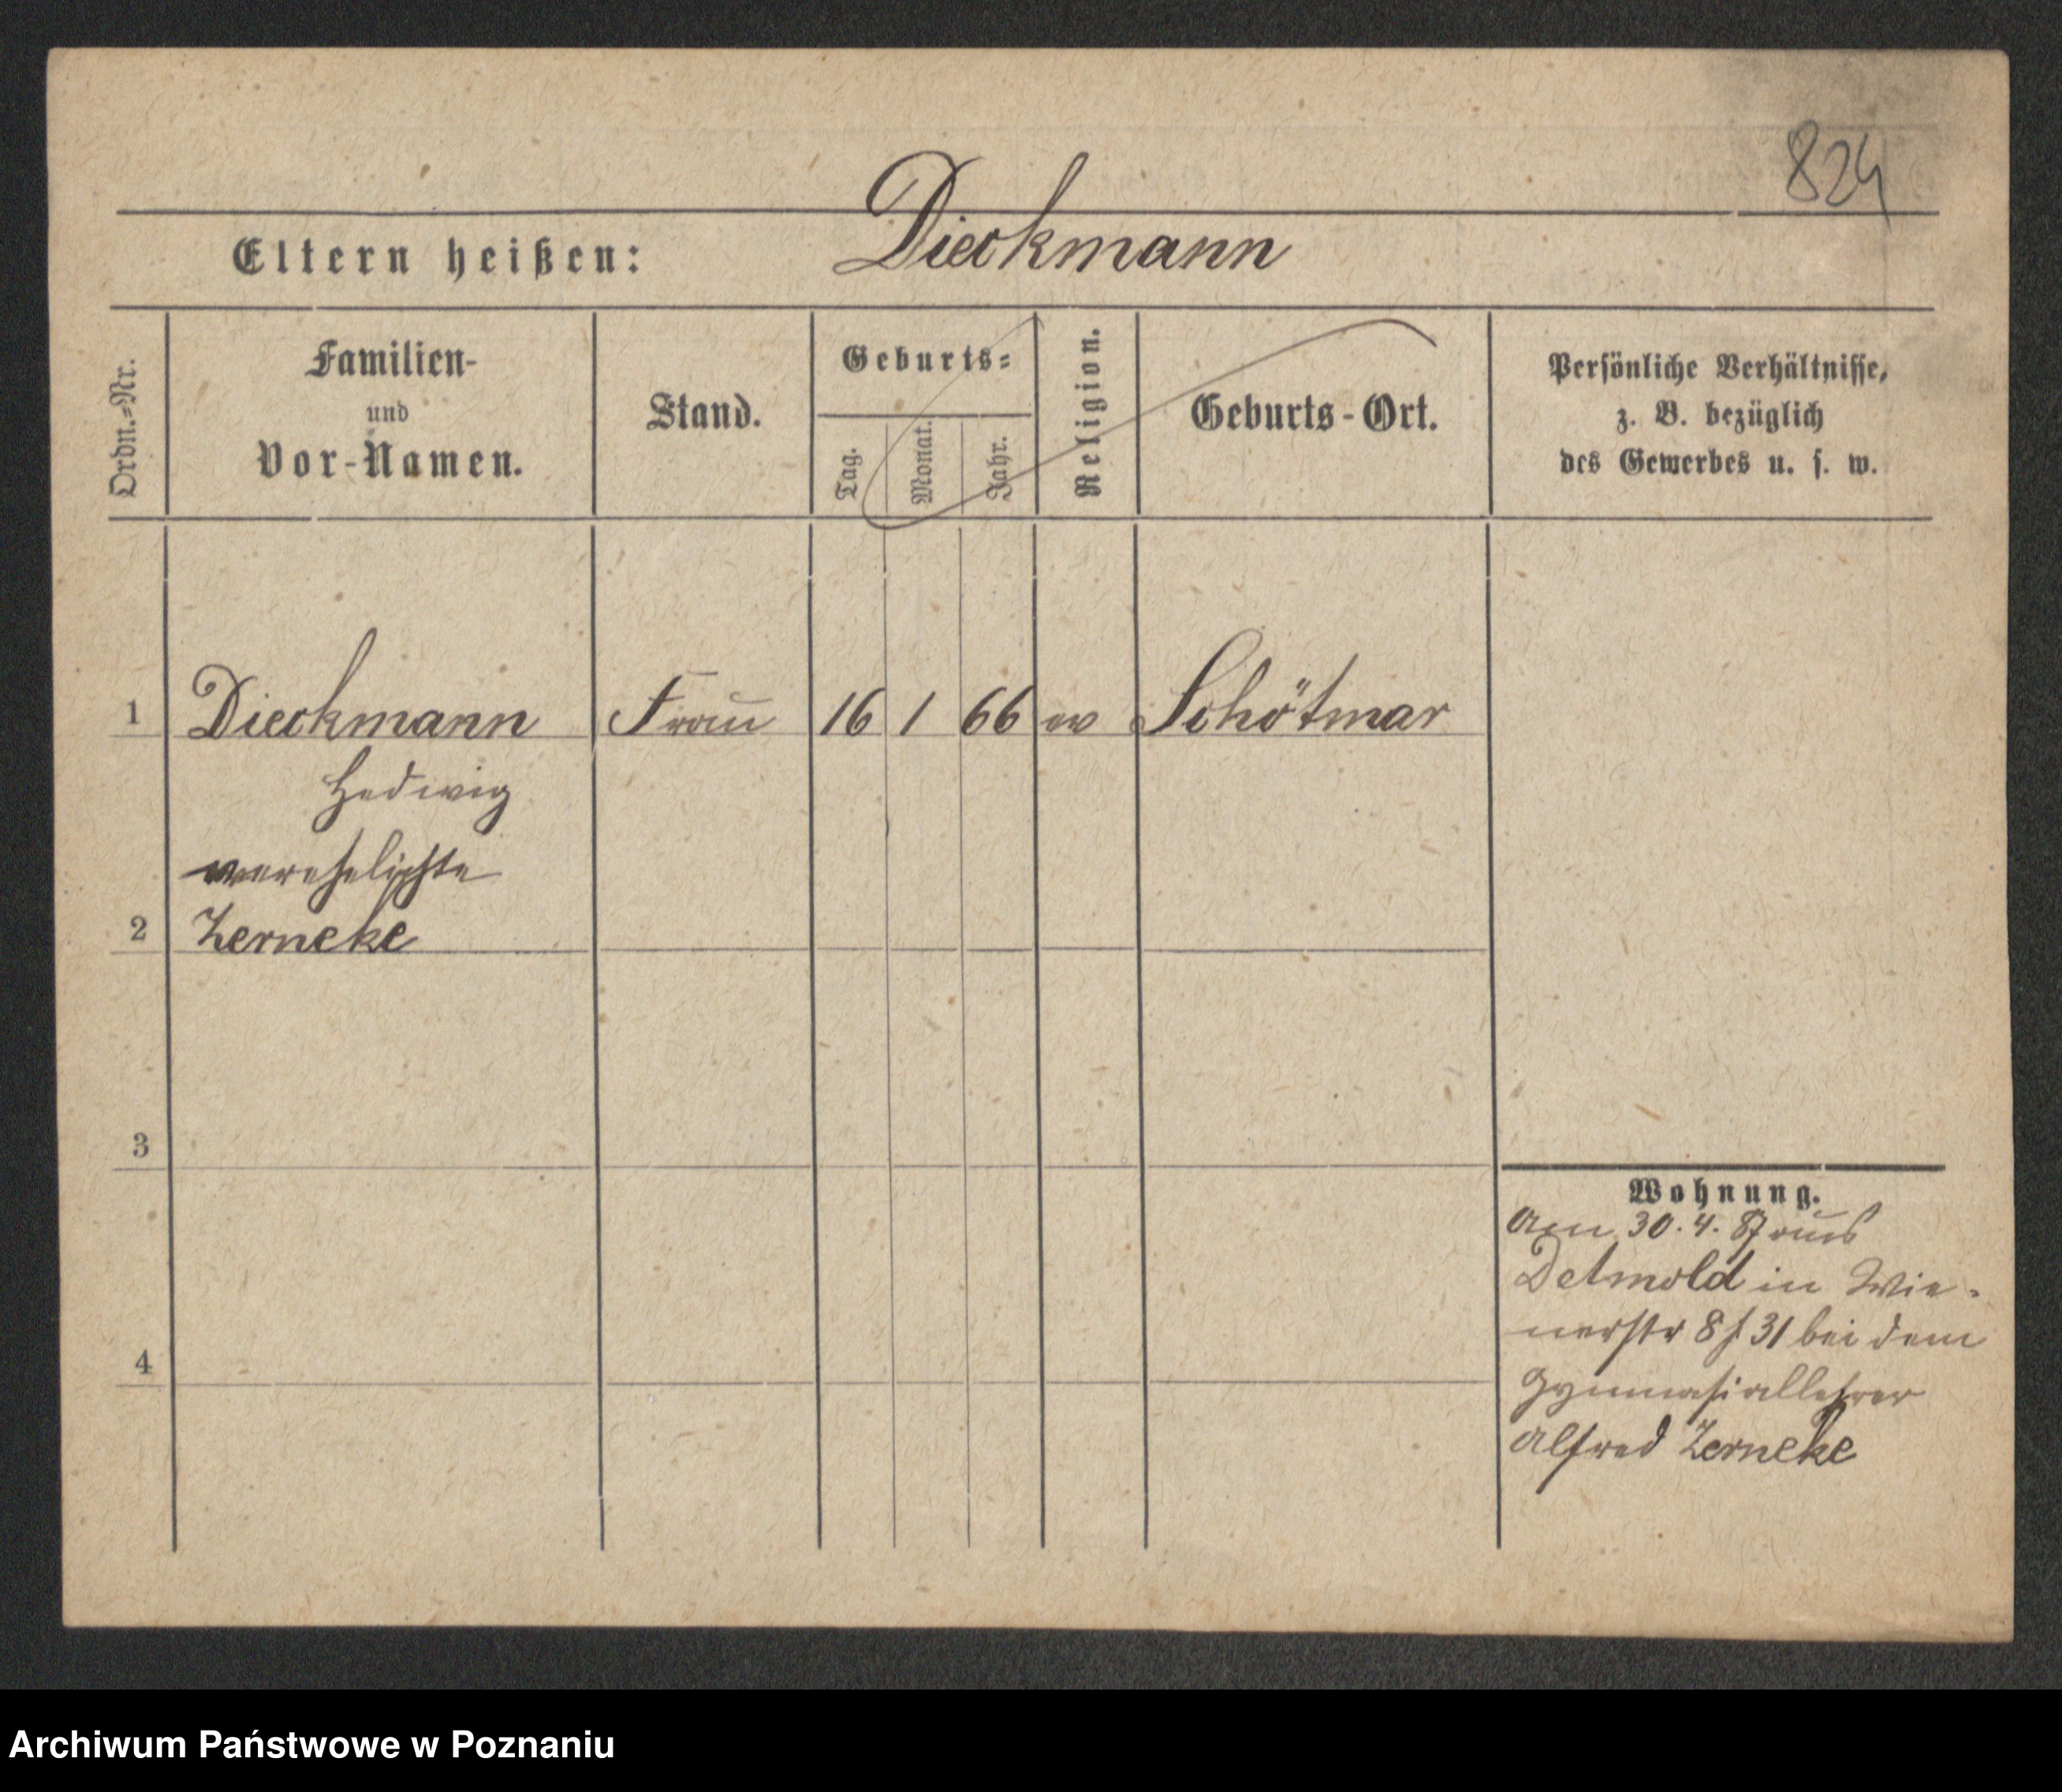 824
Eltern heißen: Dieckmann
Ordn.=Nr.
Familien-
und
Vor-Namen.
Stand.
Geburts=
Tag.
Monat.
Jahr.
Religion.
Geburts-Ort.
Persönliche Verhältnisse,
z. B. bezüglich
des Gewerbes u. s. w.
1 Dieckmann Frau 16 1 66 ev Schötmar
Hedwig
verehelichte
2 Zerneke
3
4
Wohnung.
Am 30. 4. 87 aus
Detmold in Wie-
nerstr 8 31 bei dem
Gymnasiallehrer
Alfred Zerneke
Archiwum Państwowe w Poznaniu